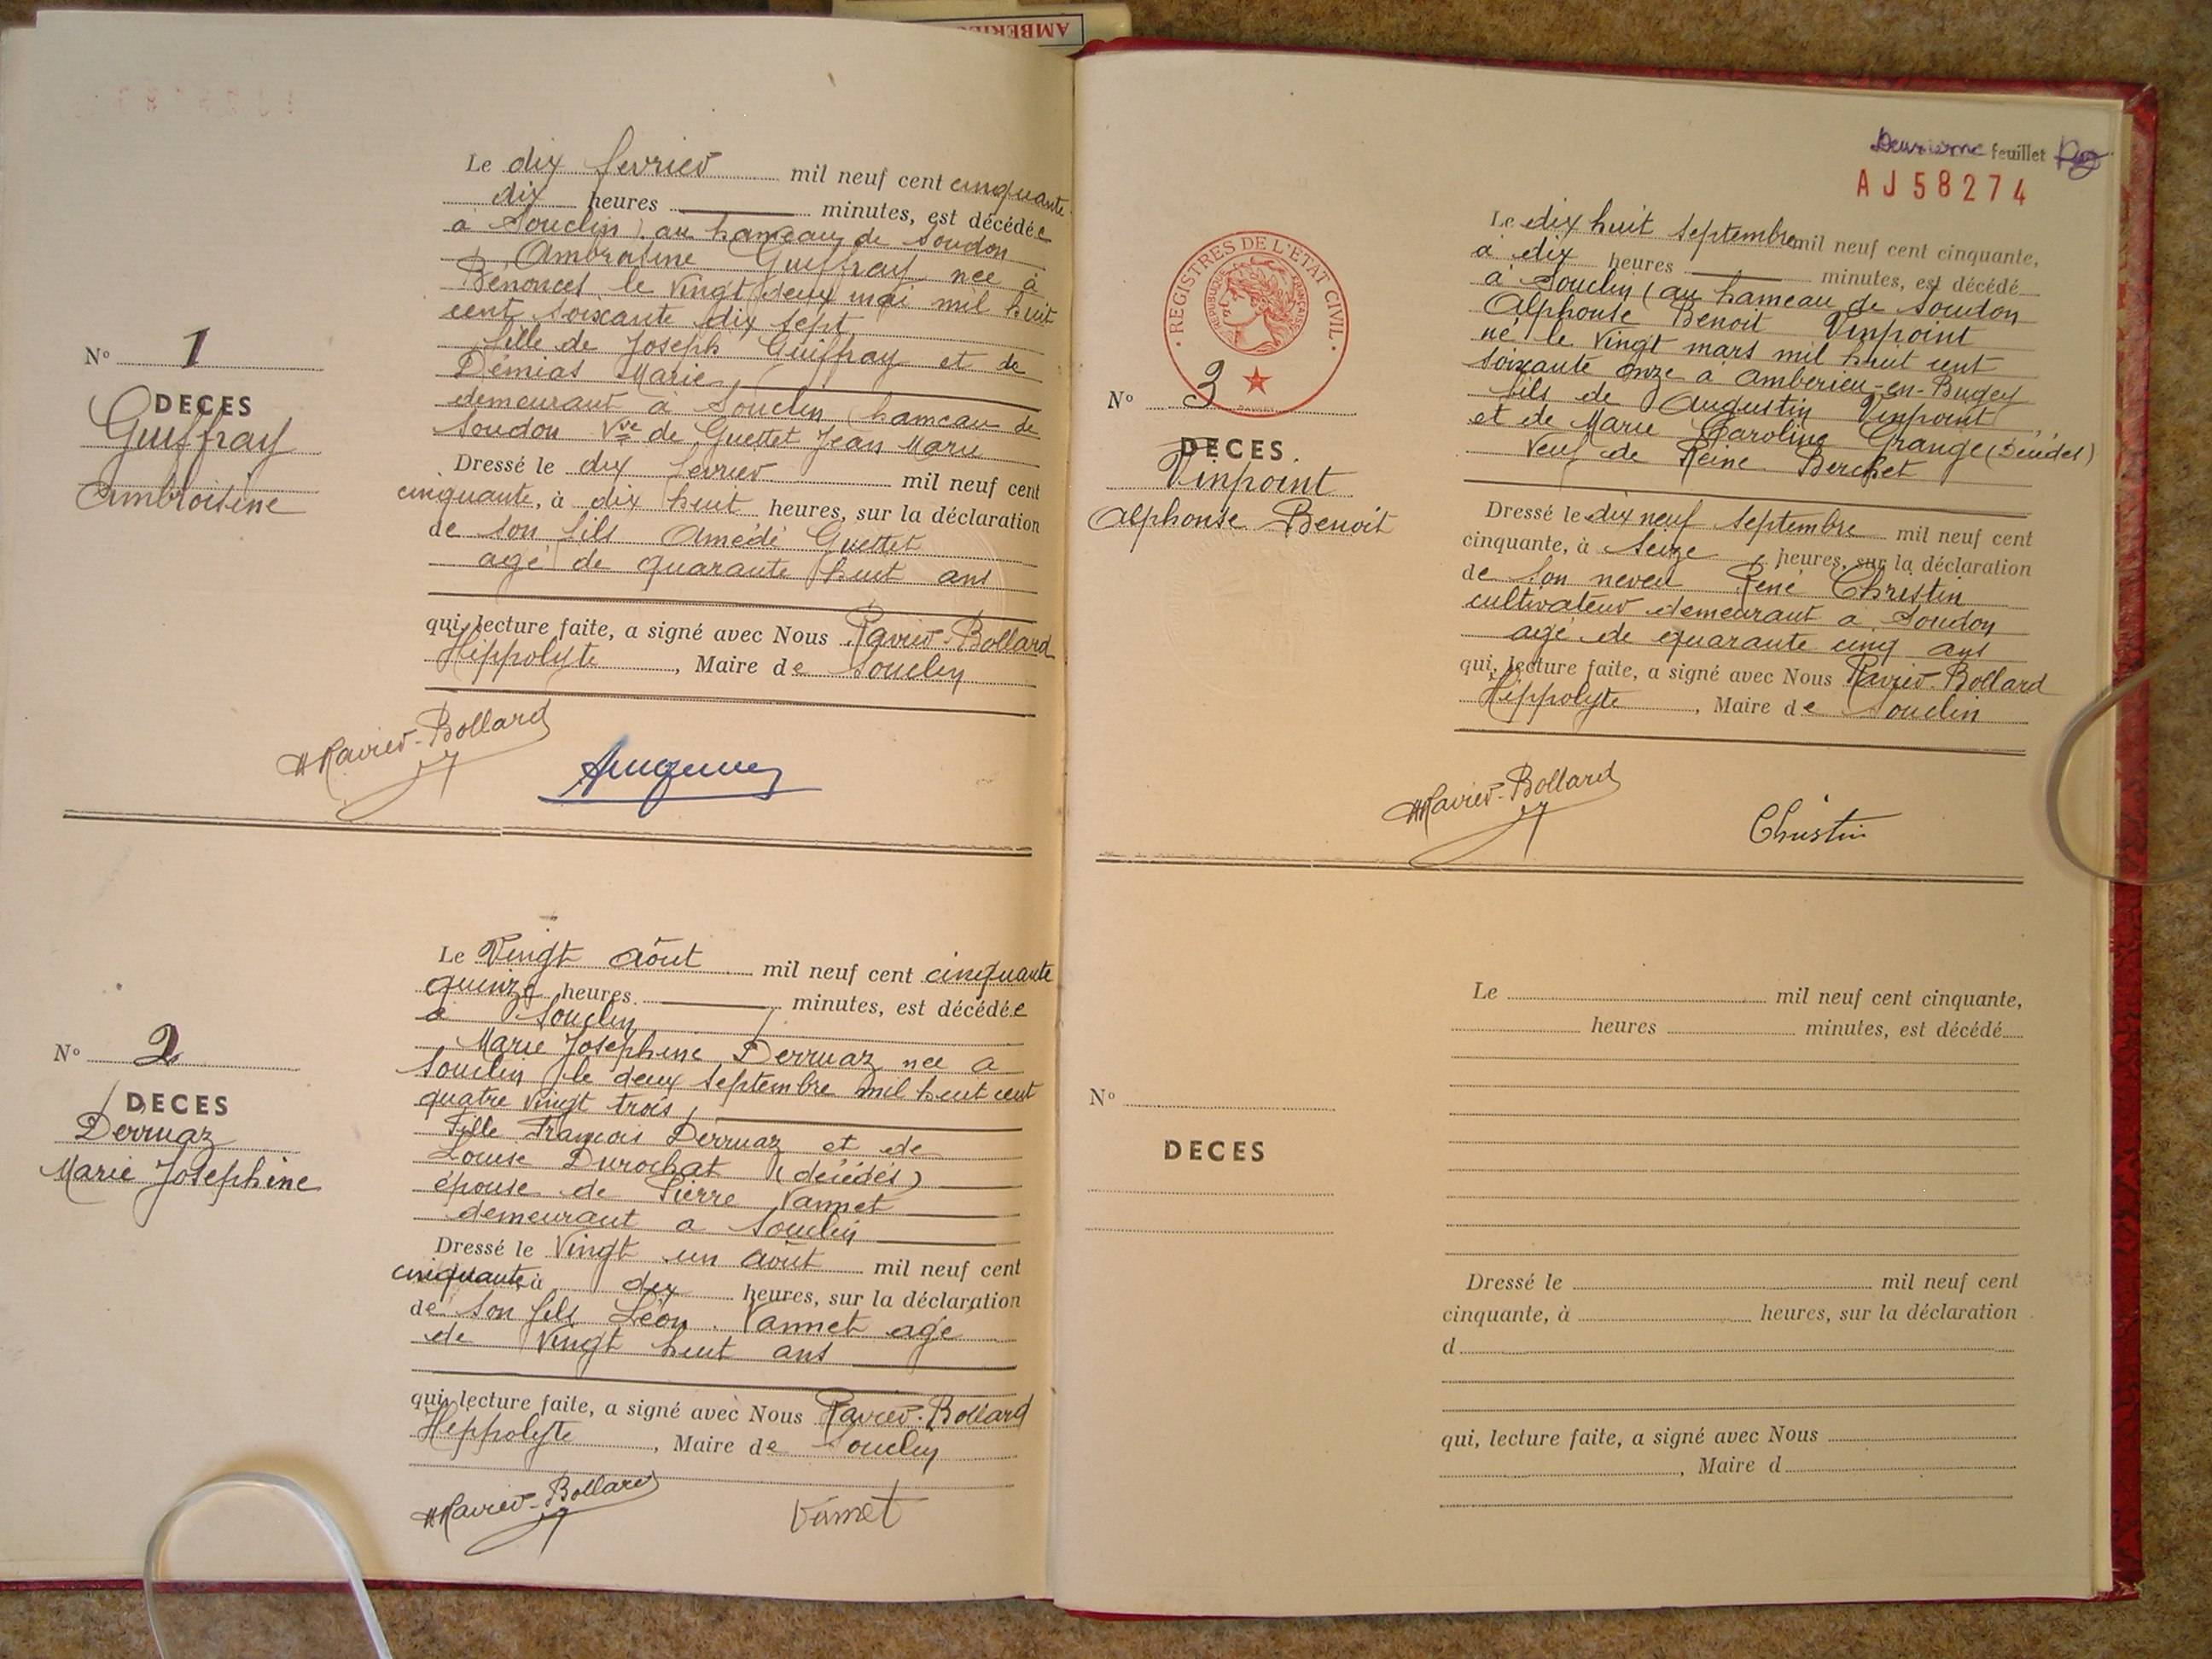 AMBERIEU
Le dix fevrier mil neuf cent cinquante
dix heures minutes, est décédée
à Souclin) au hameau de Soudon
Ambroisine Guiffray nee à
Bénonces le vingt deux mai mil huit
cent soixante dix sept
fille de Joseph Guiffray et de
Démias Marie,
demeurant à Souclin (hameau de
Soudon Vve de Guettet Jean Marie
Dressé le dix fevrier mil neuf cent
cinquante, à dix huit heures, sur la déclaration
de son fils Amédé Guettet
agé de quarante huit ans
qui, lecture faite, a signé avec Nous Ravier-Bollard
Hippolyte, Maire de Souclin
N° 1
DECES
Guiffray
Ambroisine
HRavier-Bollard
Le Vingt août mil neuf cent cinquante
quinze heures. minutes, est décédée
à Souclin
Marie Josephine Derruaz nee a
Souclin le deux Septembre mil huit cent
quatre vingt trois,
Fille François Derruaz et de
Louise Durochat (décédés)
épouse de Pierre Vannet
demeurant a Souclin
Dressé le Vingt un août mil neuf cent
cinquante, à dix heures, sur la déclaration
de son fils Léon. Vannet agé
de vingt huit ans
qui, lecture faite, a signé avec Nous Ravier-Bollard
Hippolyte, Maire de Souclin
N° 2
DECES
Derruaz
Marie Josephine
HRavier-Bollard
Vannet
Deuxieme feuillet
AJ58274
REGISTRES DE L'ETAT CIVIL
REPUBLIQUE FRANÇAISE
Le dix huit Septembre mil neuf cent cinquante,
à dix heures minutes, est décédé
à Souclin (au hameau de Soudon
Alphonse Benoit Vinpoint
né le vingt mars mil huit cent
soixante onze à Amberieu-en-Bugey
fils de Augustin Vinpoint
et de Marie Caroline Grange (décédés)
Veuf de Reine Berchet
Dressé le dix neuf Septembre mil neuf cent
cinquante, à Seize heures, sur la déclaration
de son neveu René Christin
cultivateur demeurant a Soudon
agé de quarante cinq ans
qui, lecture faite, a signé avec Nous Ravier-Bollard
Hippolyte, Maire de Souclin
N° 3
DECES.
Vinpoint
Alphonse Benoit
HRavier-Bollard
Christin
Le mil neuf cent cinquante,
heures minutes, est décédé
N°
DECES
Dressé le mil neuf cent
cinquante, à heures, sur la déclaration
d
qui, lecture faite, a signé avec Nous
, Maire d